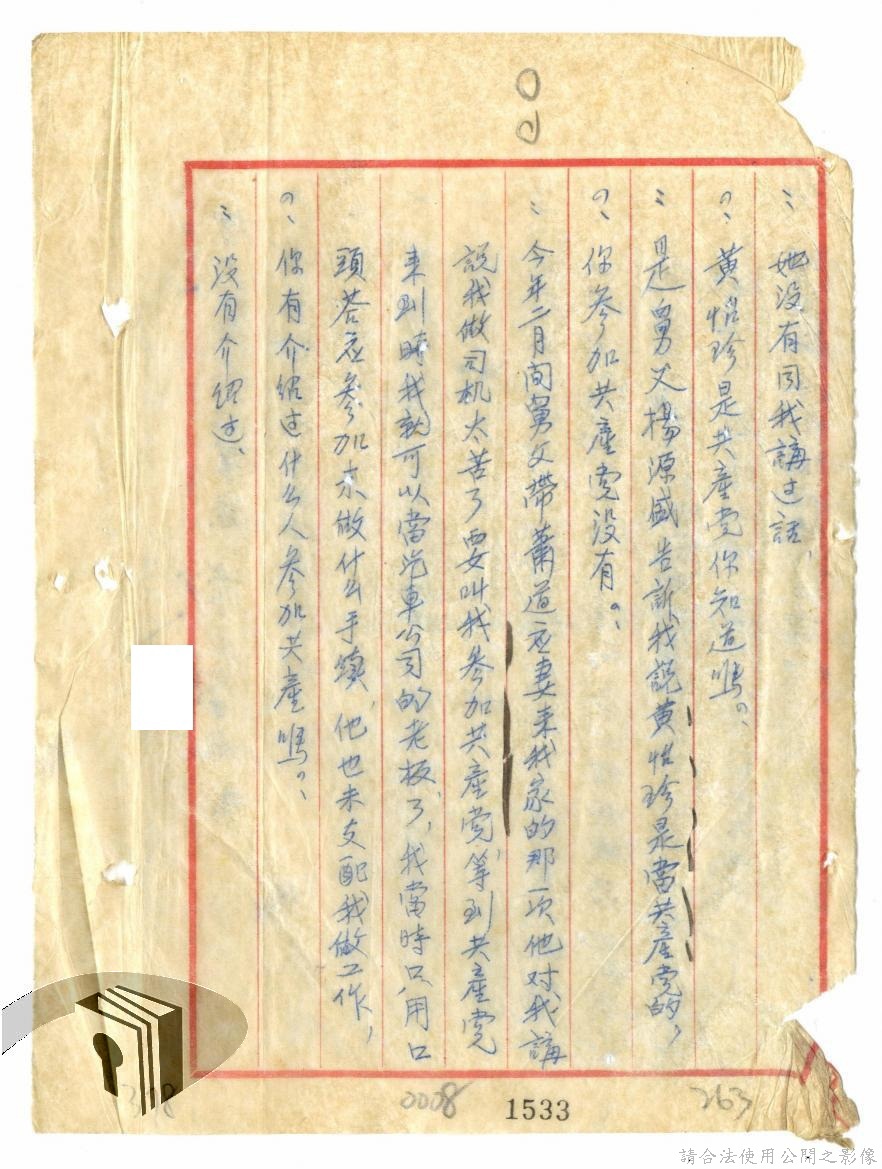 ：她没有同我講过話、
？、黄怡珍是共產党你知道嗎？、
：是舅父楊源盛告訴我説黄怡珍是當共產党的，
？、你参加共產党没有？、
：今年二月间舅父帶蕭道应妻来我家的那一次他对我講
説我做司机太苦了要叫我参加共產党，等到共產党
来到時我就可以當汽車公司的老板了，我當時只用口
頭荅应参加未做什么手續，他也未支配我做工作，
？、你有介绍过什么人参加共產嗎？、
：没有介绍过、
0008
1533
263
請合法使用公開之影像